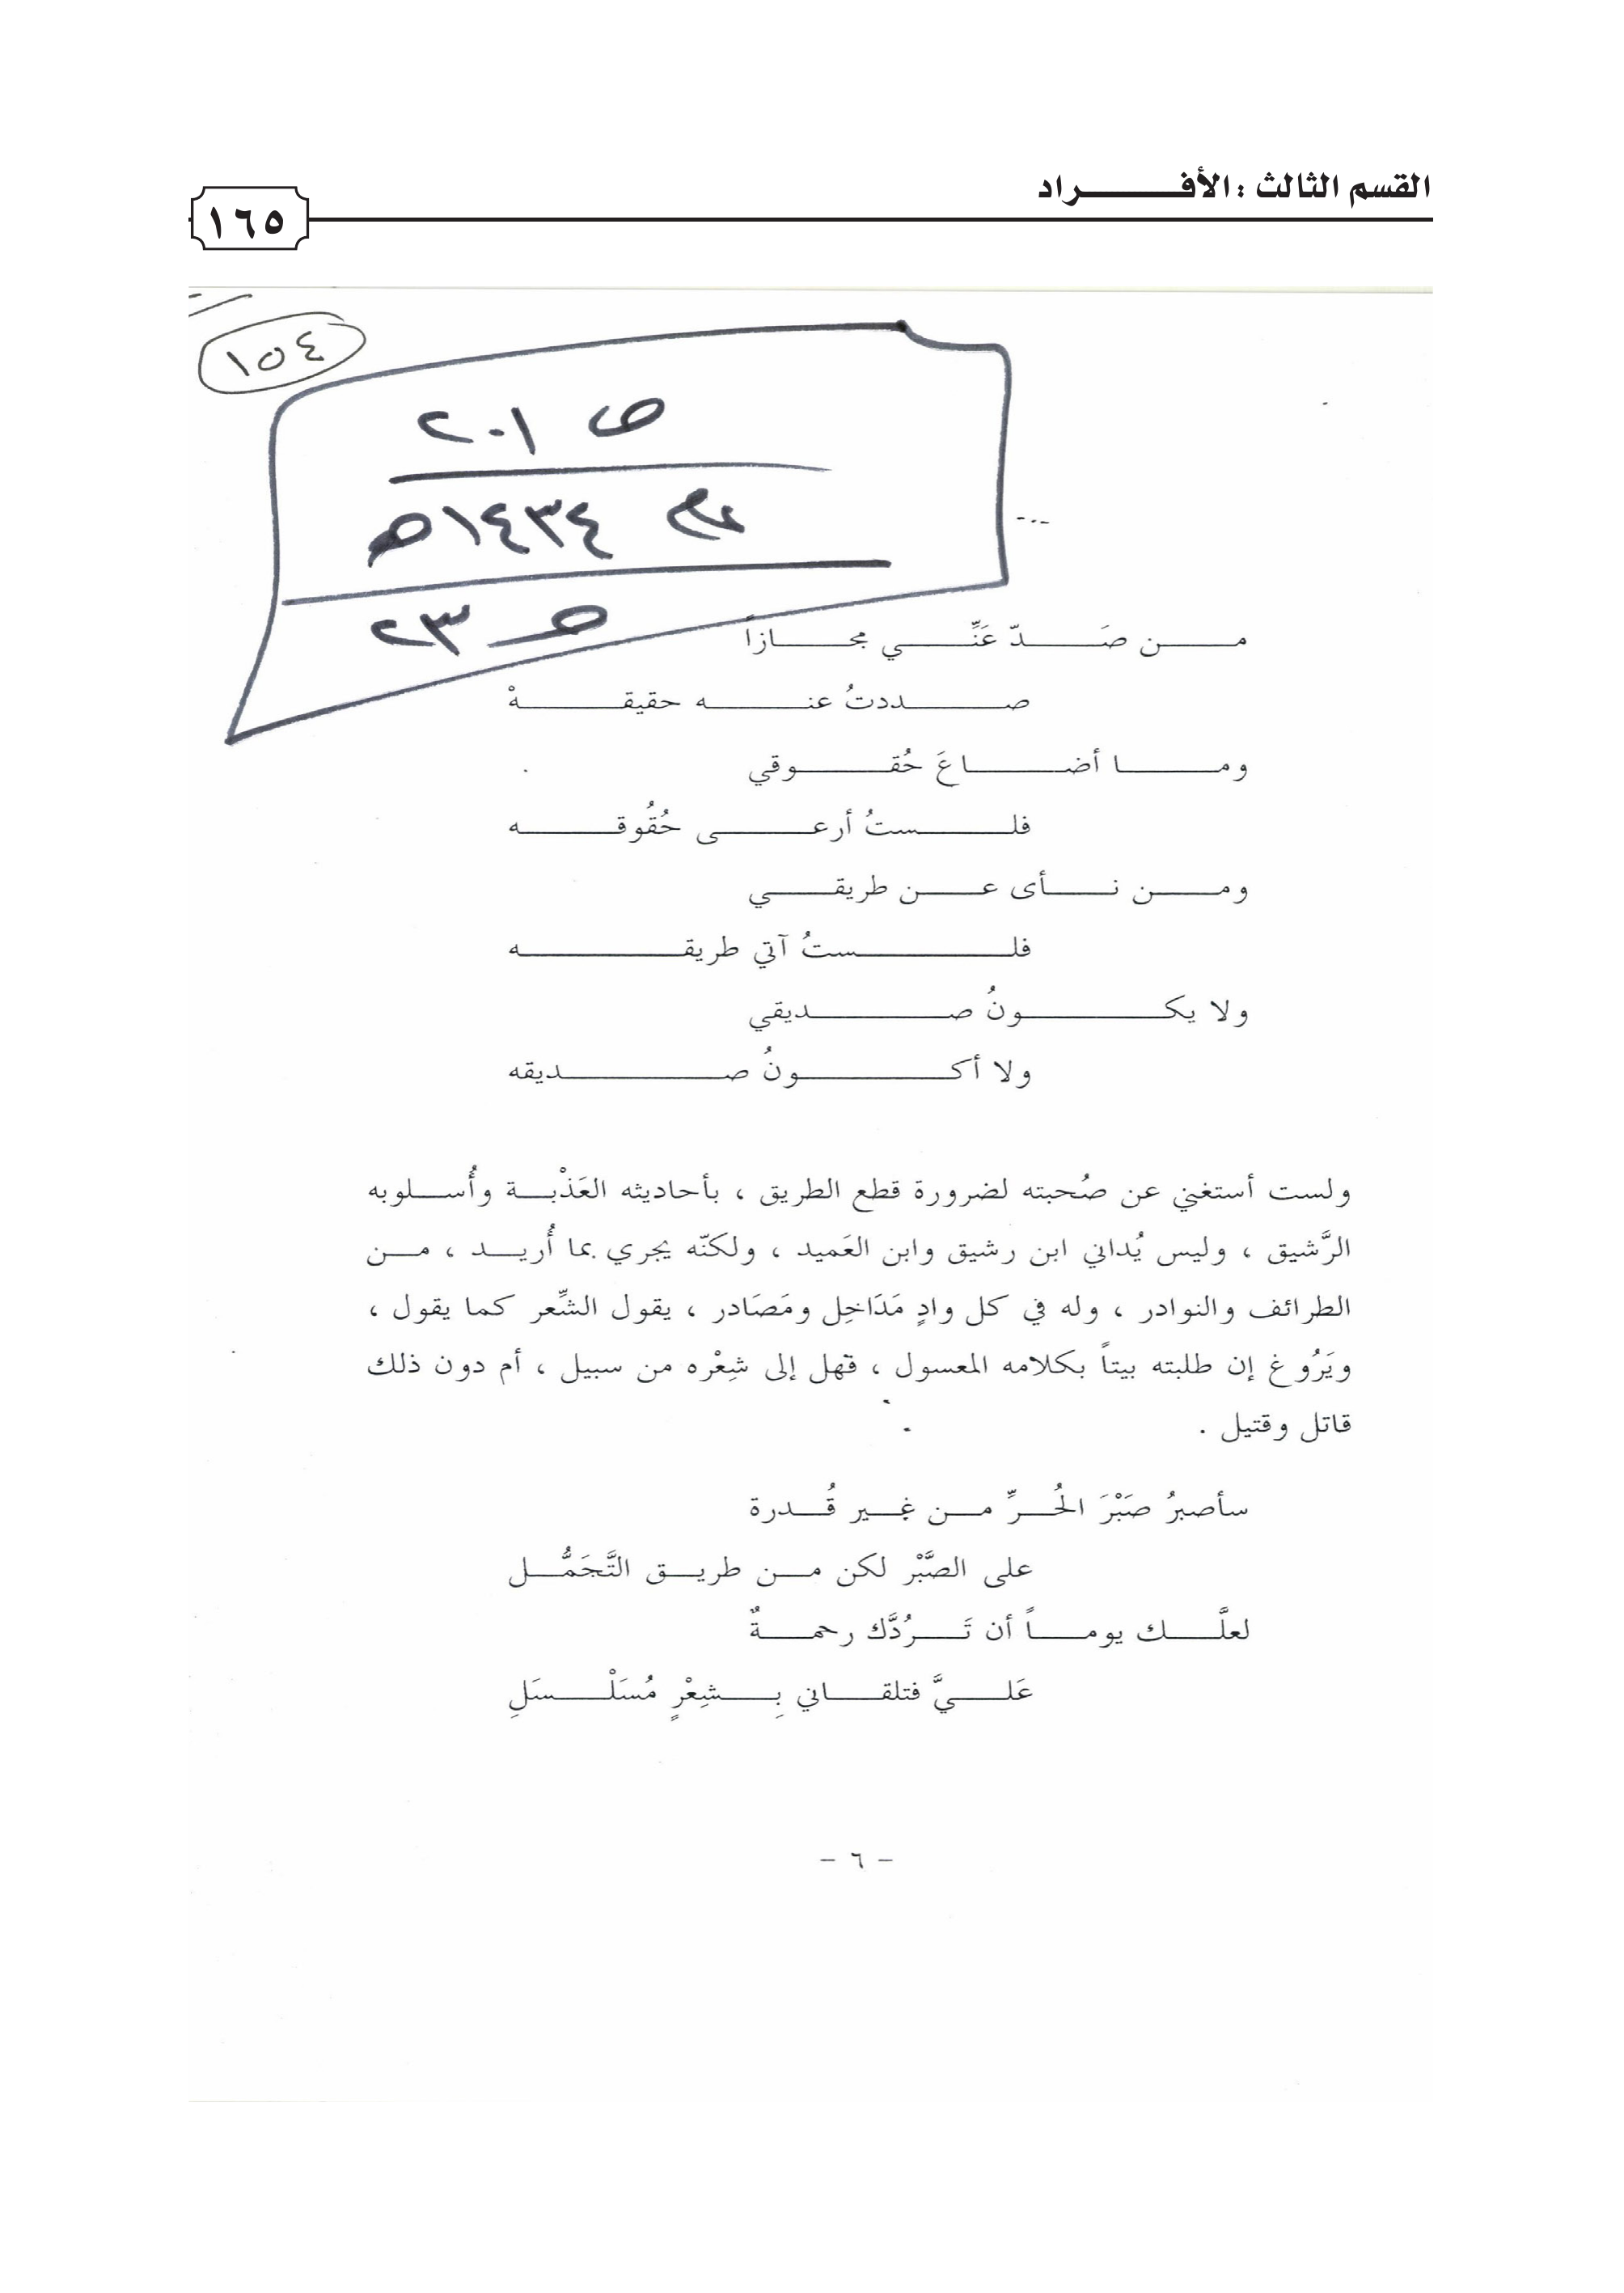 القسم الثالث : الأفـــــــراد
١٦٥
١٥٤
ص ٢٠١
١٤٣٤هـ
٢٣
مـــن صَـــدّ عَنِّـــي مجـــازاً
صـــددتُ عنـــه حقيقـــةْ
ومـــا أضـــاعَ حُقـــوقي
فلـــستُ أرعـــى حُقُوقـــه
ومـــن نـــأى عـــن طريقـــي
فلـــستُ آتي طريقـــه
ولا يكـــونُ صـــديقي
ولا أكـــونُ صـــديقه
ولست أستغني عن صُحبته لضرورة قطع الطريق ، بأحاديثه العَذْبـــة وأُســـلوبه
الرَّشيق ، وليس يُداني ابن رشيق وابن العَميد ، ولكنّه يجري بما أُريـــد ، مـــن
الطرائف والنوادر ، وله في كل وادٍ مَدَاخِل ومَصَادر ، يقول الشِّعر كما يقول ،
ويَرُوغ إن طلبته بيتاً بكلامه المعسول ، قهل إلى شِعْره من سبيل ، أم دون ذلك
قاتل وقتيل .
سأصبرُ صَبْرَ الحُـــرِّ مـــن غـــير قُـــدرة
على الصَّبْر لكن مـــن طريـــق التَّجَمُّـــل
لعلَّـــك يومـــاً أن تَـــرُدَّك رحمـــةٌ
عَلـــيَّ فتلقـــاني بِـــشِعْرٍ مُسَلْـــسَلِ
- ٦ -